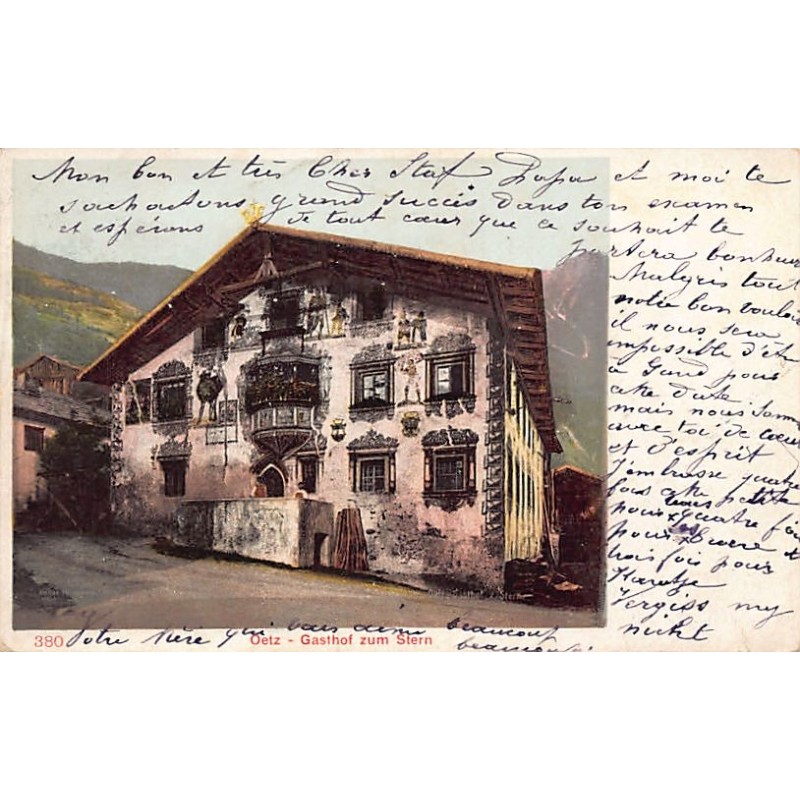 Mon bon et très Cher Staf Papa et moi te
souhaitons grand succès dans ton examen
et espérons de tout cœur que ce souhait te
portera bonheur
Malgris tout
notre bon vouloir
il nous sera
impossible d'être
à Gand pour
cette date
mais nous somm
avec toi de cœur
et d'esprit
J'embrasse quatre
fois cette petite
pour
pour
trois fois pour
Vergiss my
nicht
Votre Mère qui vous aime beaucoup
beaucoup
380 Oetz - Gasthof zum Stern